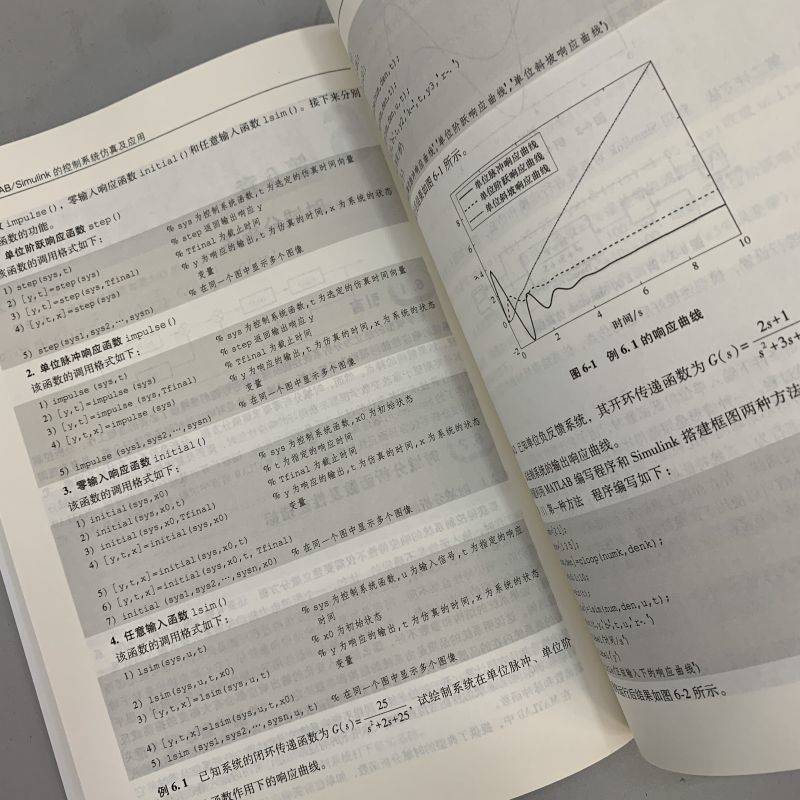 AB/Simulink 的控制系统仿真及应用
impulse()，零输入响应函数 initial()和任意输入函数 lsim()。接下来分别
函数的功能。
单位阶跃响应函数 step()
该函数的调用格式如下：
1) step(sys,t) % sys 为控制系统函数，t 为选定的仿真时间向量
2) [y,t]=step(sys) % step 返回输出响应 y
3) [y,t]=step(sys,Tfinal) % Tfinal 为截止时间
4) [y,t,x]=step(sys) % y 为响应的输出，t 为仿真的时间，x 为系统的状态
变量
5) step(sys1,sys2,…,sysn) % 在同一个图中显示多个图像
2. 单位脉冲响应函数 impulse()
该函数的调用格式如下：
1) impulse (sys,t) % sys 为控制系统函数，t 为选定的仿真时间向量
2) [y,t]=impulse (sys) % step 返回输出响应 y
3) [y,t]=impulse (sys,Tfinal) % Tfinal 为截止时间
4) [y,t,x]=impulse (sys) % y 为响应的输出，t 为仿真的时间，x 为系统的状态
变量
5) impulse (sys1,sys2,…,sysn) % 在同一个图中显示多个图像
3. 零输入响应函数 initial()
该函数的调用格式如下：
1) initial(sys,x0) % sys 为控制系统函数，x0 为初始状态
2) initial(sys,x0,t) % t 为指定的响应时间
3) initial(sys,x0,Tfinal) % Tfinal 为截止时间
4) [y,t,x]=initial(sys,x0) % y 为响应的输出，t 为仿真的时间，x 为系统的状态
变量
5) [y,t,x]=initial(sys,x0,t)
6) [y,t,x]=initial(sys,x0,t, Tfinal)
7) initial (sys1,sys2,…,sysn,x0) % 在同一个图中显示多个图像
4. 任意输入函数 lsim()
该函数的调用格式如下：
1) lsim(sys,u,t) % sys 为控制系统函数，u 为输入信号，t 为指定的响应
时间
2) lsim(sys,u,t,x0) % x0 为初始状态
3) [y,t,x]=lsim(sys,u,t) % y 为响应的输出，t 为仿真的时间，x 为系统的状态
变量
4) [y,t,x]=lsim(sys,u,t,x0)
5) lsim (sys1,sys2,…,sysn,u,t) % 在同一个图中显示多个图像
例 6.1 已知系统的闭环传递函数为 G(s)=25/(s²+2s+25)，试绘制系统在单位脉冲、单位阶
函数作用下的响应曲线。
单位阶跃响应曲线','单位斜坡响应曲线')
如图 6-1 所示。
单位脉冲响应曲线
单位阶跃响应曲线
单位斜坡响应曲线
8
6
4
2
0
-2
0 2 4 6 8 10
时间/s
图 6-1 例 6.1 的响应曲线
已知单位负反馈系统，其开环传递函数为 G(s)=2s+1/s²+3s+
系统的输出响应曲线。
MATLAB 编写程序和 Simulink 搭建框图两种方法
第一种方法 程序编写如下：
cloop(numk,denk);
lsim(num,den,u,t);
输入下的响应曲线')
运行后结果如图 6-2 所示。